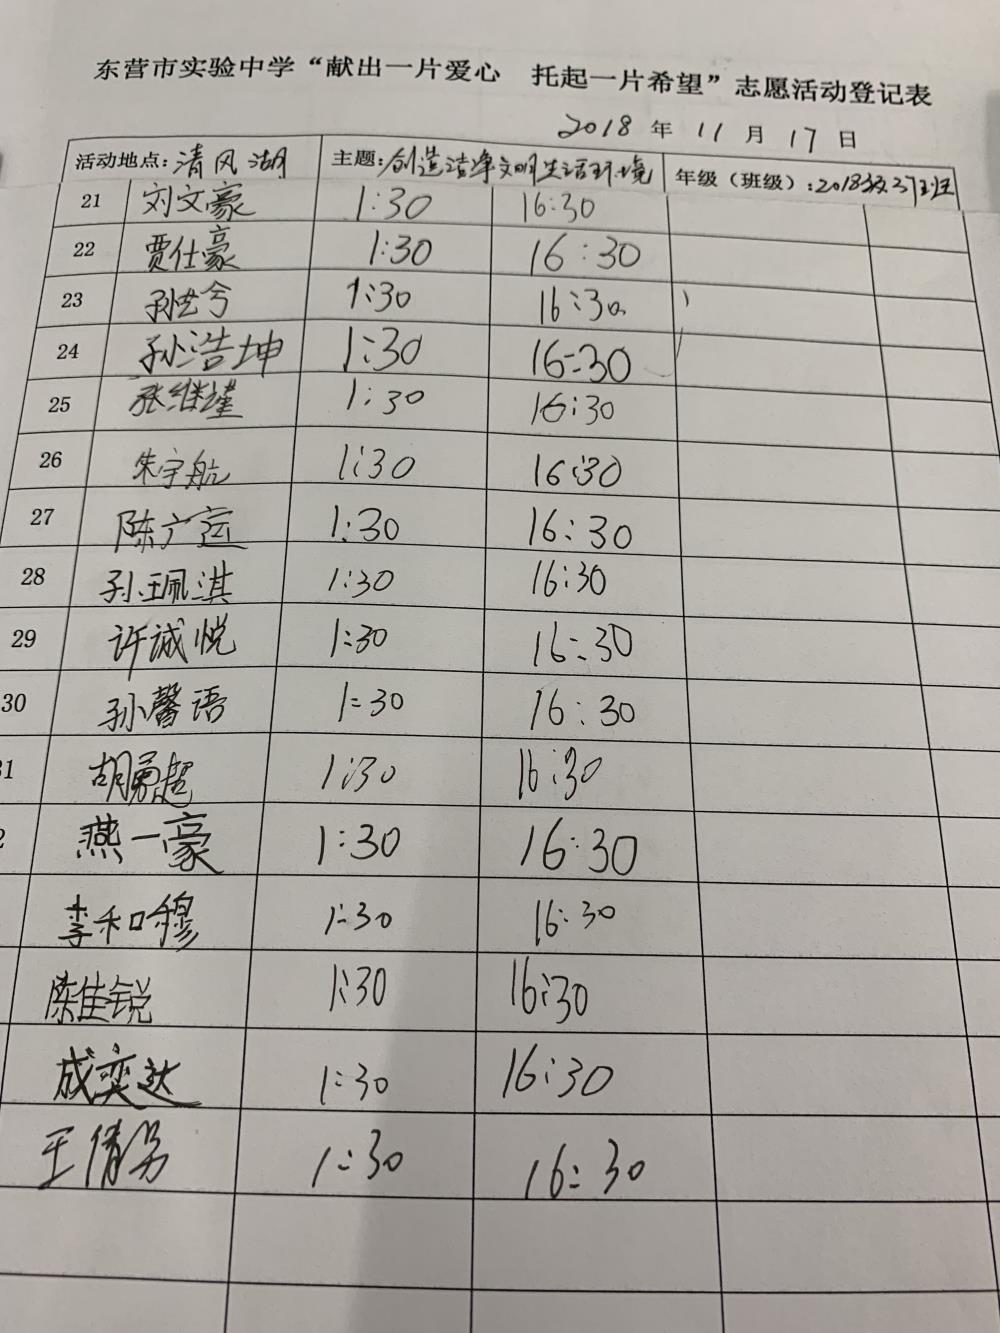 东营市实验中学“献出一片爱心 托起一片希望”志愿活动登记表
2018 年 11 月 17 日
活动地点:清风湖 主题:创造洁净文明生活环境 年级(班级):2018级37班
21 刘文豪 1:30 16:30
22 贾仕豪 1:30 16:30
23 孙艺兮 1:30 16:30
24 孙浩坤 1:30 16:30
25 张继瑾 1:30 16:30
26 朱宇航 1:30 16:30
27 陈广运 1:30 16:30
28 孙珮淇 1:30 16:30
29 许诚悦 1:30 16:30
30 孙馨语 1:30 16:30
31 胡勇超 1:30 16:30
2 燕一豪 1:30 16:30
李和穆 1:30 16:30
陈佳锐 1:30 16:30
成奕达 1:30 16:30
王倩 1:30 16:30